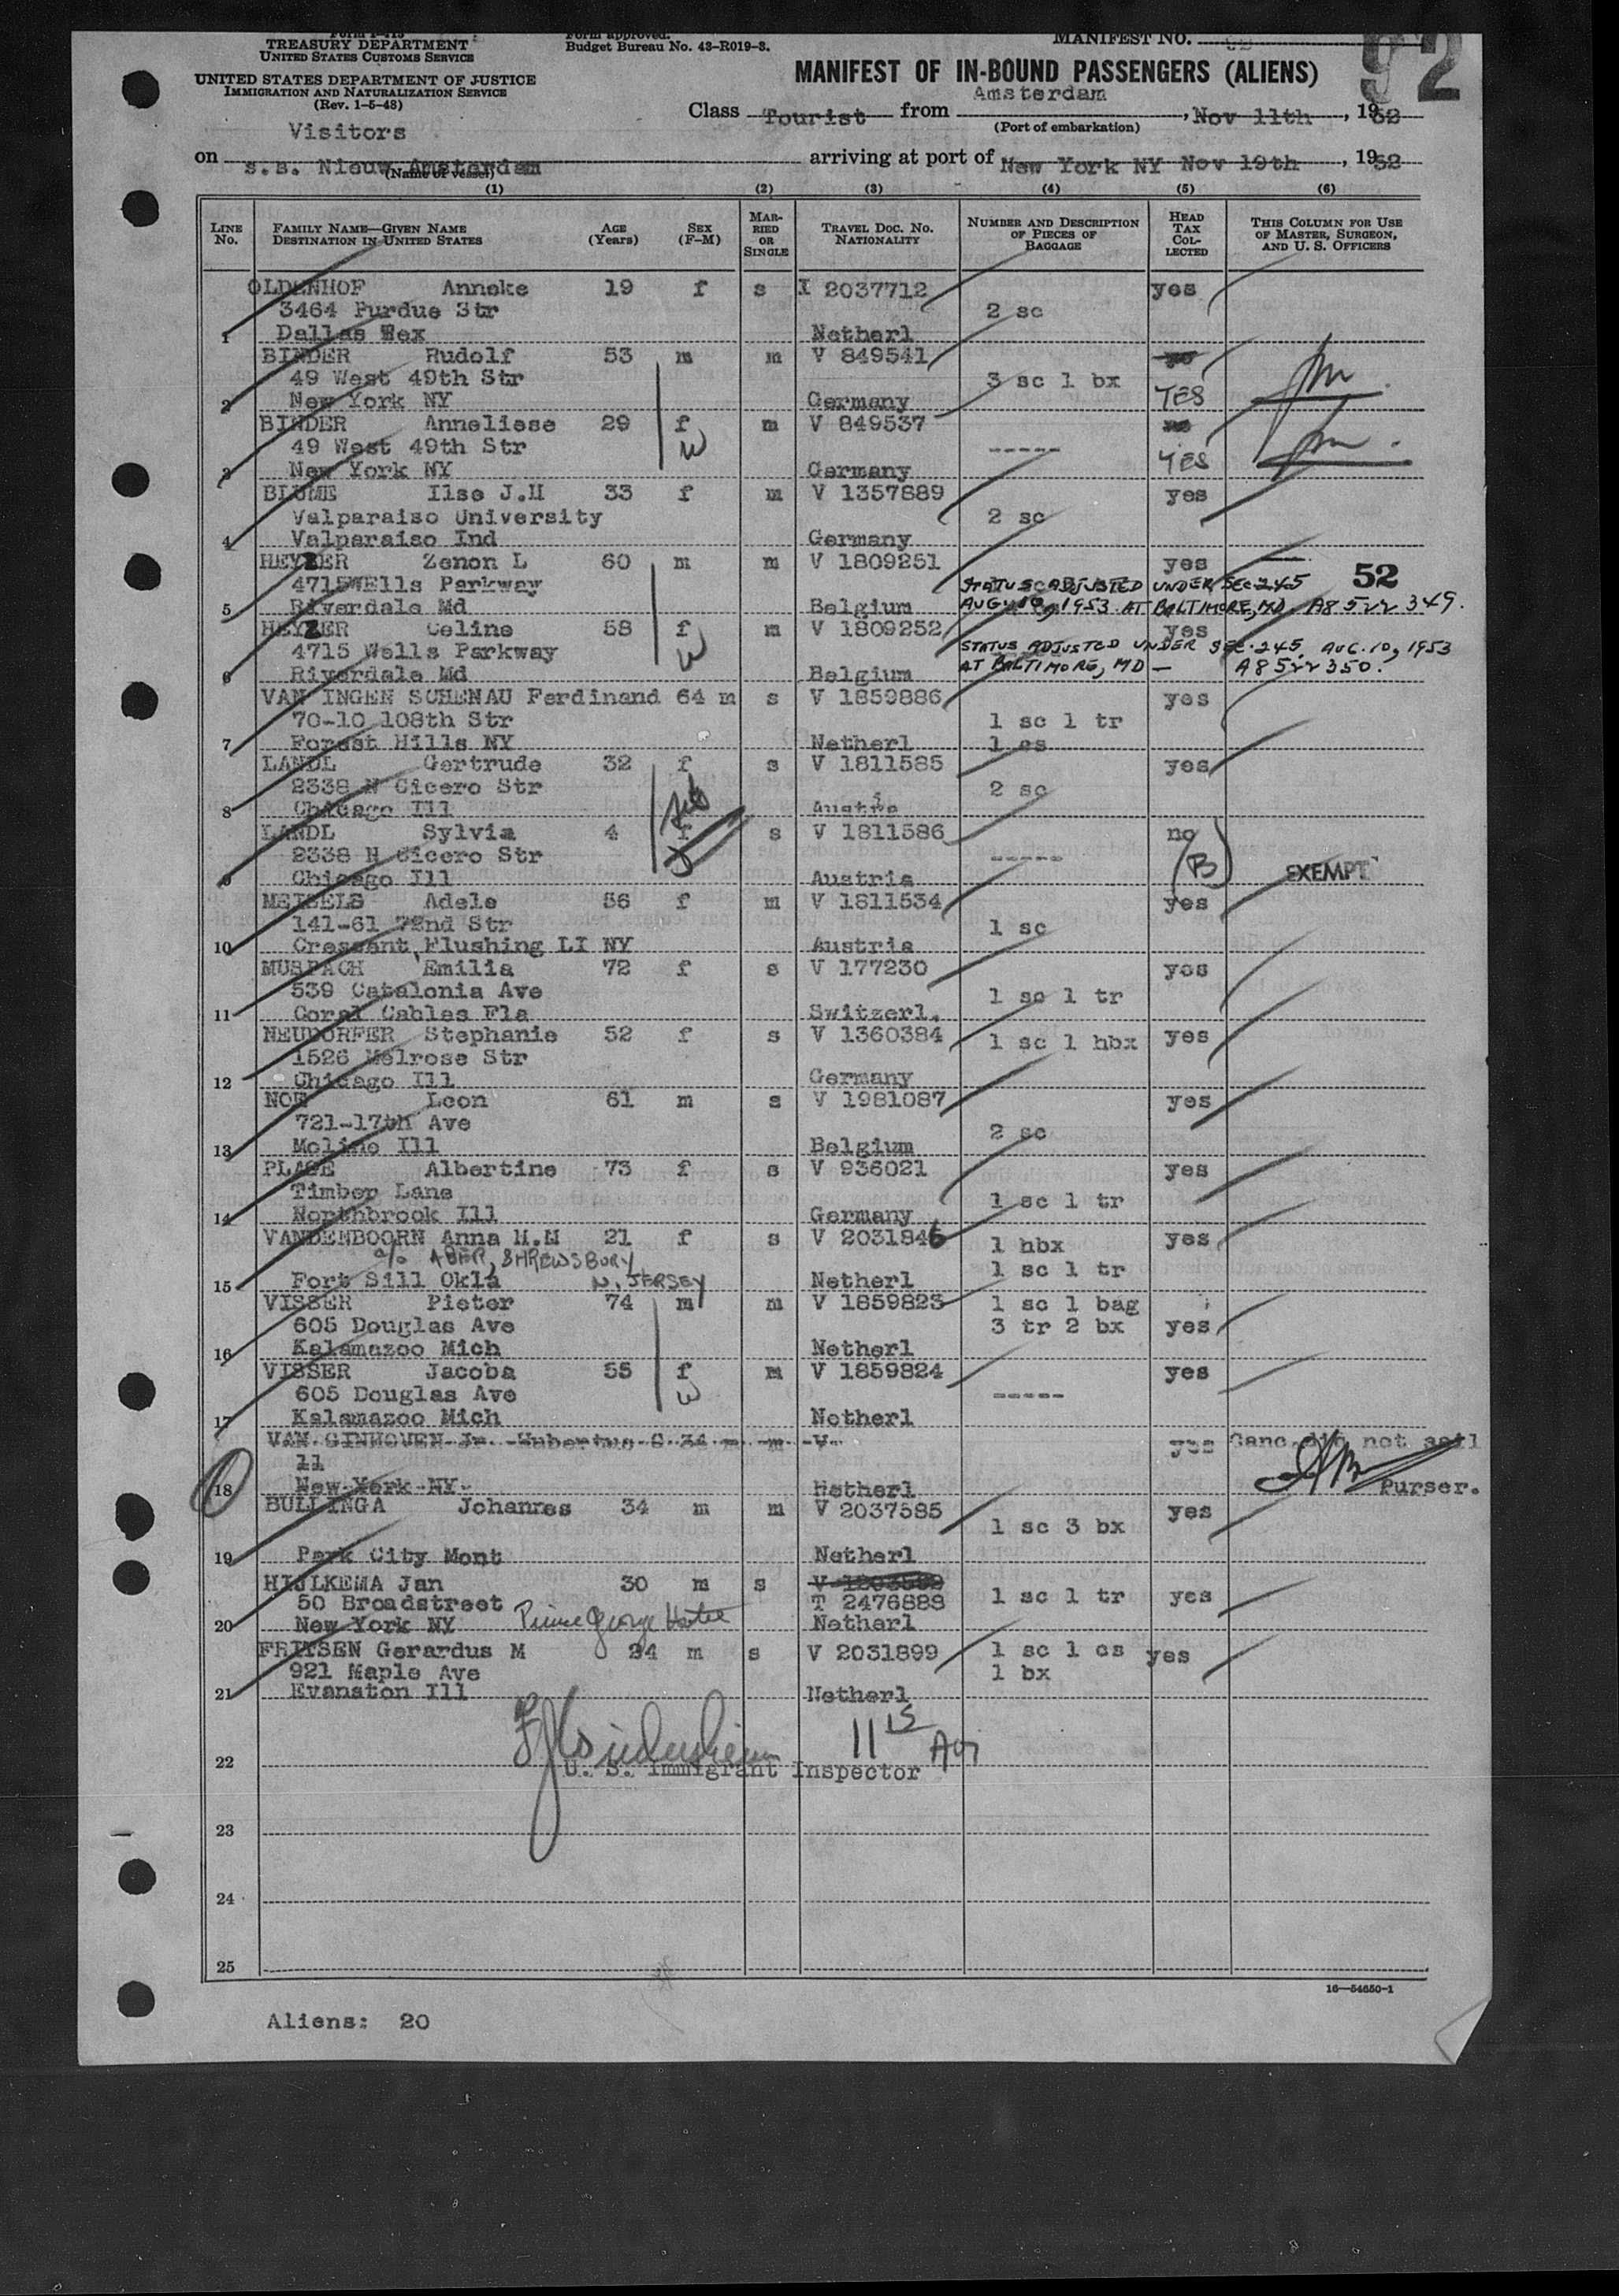 Form I-415
TREASURY DEPARTMENT
UNITED STATES CUSTOMS SERVICE
UNITED STATES DEPARTMENT OF JUSTICE
IMMIGRATION AND NATURALIZATION SERVICE
(Rev. 1-5-48)
Form approved.
Budget Bureau No. 43-R019-3.
MANIFEST NO.
92
MANIFEST OF IN-BOUND PASSENGERS (ALIENS)
Class Tourist from Amsterdam, Nov 11th, 1952
(Port of embarkation)
Visitors
on s.s. Nieuw Amsterdam arriving at port of New York NY Nov 19th, 1952
(Name of vessel)
(1) (2) (3) (4) (5) (6)
LINE No. FAMILY NAME—GIVEN NAME DESTINATION IN UNITED STATES AGE (Years) SEX (F-M) MARRIED OR SINGLE TRAVEL DOC. NO. NATIONALITY NUMBER AND DESCRIPTION OF PIECES OF BAGGAGE HEAD TAX COLLECTED THIS COLUMN FOR USE OF MASTER, SURGEON, AND U. S. OFFICERS
OLDENHOF Anneke 19 f s I 2037712 yes
3464 Purdue Str 2 sc
1 Dallas Tex Netherl
BINDER Rudolf 53 m m V 849541 no
49 West 49th Str 3 sc 1 bx YES
2 New York NY Germany
BINDER Anneliese 29 f m V 849537 no
49 West 49th Str W ----- YES
3 New York NY Germany
BLUME Ilse J.H 33 f m V 1357889 yes
Valparaiso University 2 sc
4 Valparaiso Ind Germany
HEYZER Zenon L 60 m m V 1809251 yes
4715WElls Parkway STATUS ADJUSTED UNDER SEC 245 52
5 Riverdale Md Belgium AUG. 10, 1953 AT BALTIMORE, MD. A8 522 349.
HEYZER Celine 58 f m V 1809252 yes
4715 Wells Parkway W STATUS ADJUSTED UNDER SEC. 245. AUG. 10, 1953
6 Riverdale Md Belgium AT BALTIMORE, MD — A8522350.
VAN INGEN SCHENAU Ferdinand 64 m s V 1859886 yes
70-10 108th Str 1 sc 1 tr
7 Forest Hills NY Netherl 1 cs
LANDL Gertrude 32 f s V 1811585 yes
2338 N Cicero Str 2 sc
8 Chicago Ill Austria
LANDL Sylvia 4 f s V 1811586 no
2338 N Cicero Str ----- (B) EXEMPT
9 Chicago Ill Austria
MEISELS Adele 56 f m V 1811534 yes
141-61 72nd Str 1 sc
10 Crescent Flushing LI NY Austria
MUSPACH Emilia 72 f s V 177230 yes
539 Catalonia Ave 1 sc 1 tr
11 Coral Gables Fla Switzerl.
NEUDORFER Stephanie 52 f s V 1360384 1 sc 1 hbx yes
1526 Melrose Str
12 Chicago Ill Germany
NOE Leon 61 m s V 1981087 yes
721-17th Ave 2 sc
13 Moline Ill Belgium
PLAGE Albertine 73 f s V 936021 yes
Timber Lane 1 sc 1 tr
14 Northbrook Ill Germany
VANDENBOORN Anna H.M 21 f s V 2031846 1 hbx yes
c/o ABER, SHREWSBURY 1 sc 1 tr
15 Fort Sill Okla N. JERSEY Netherl
VISSER Pieter 74 m m V 1859823 1 sc 1 bag
605 Douglas Ave 3 tr 2 bx yes
16 Kalamazoo Mich Netherl
VISSER Jacoba 55 f m V 1859824 yes
605 Douglas Ave W -----
17 Kalamazoo Mich Netherl
VAN GINHOVEN Jr. Hubertus C 34 m m V yes Canc. did not sail
11
18 New York NY Netherl Purser.
BULLINGA Johannes 34 m m V 2037585 yes
1 sc 3 bx
19 Park City Mont Netherl
HIJLKEMA Jan 30 m s
50 Broadstreet T 2476888 1 sc 1 tr yes
20 New York NY Prince George Hotel Netherl
FRITSEN Gerardus M 24 m s V 2031899 1 sc 1 cs yes
921 Maple Ave 1 bx
21 Evanston Ill Netherl
11 15 AM
22 U. S. Immigrant Inspector
23
24
25
16—54650-1
Aliens: 20